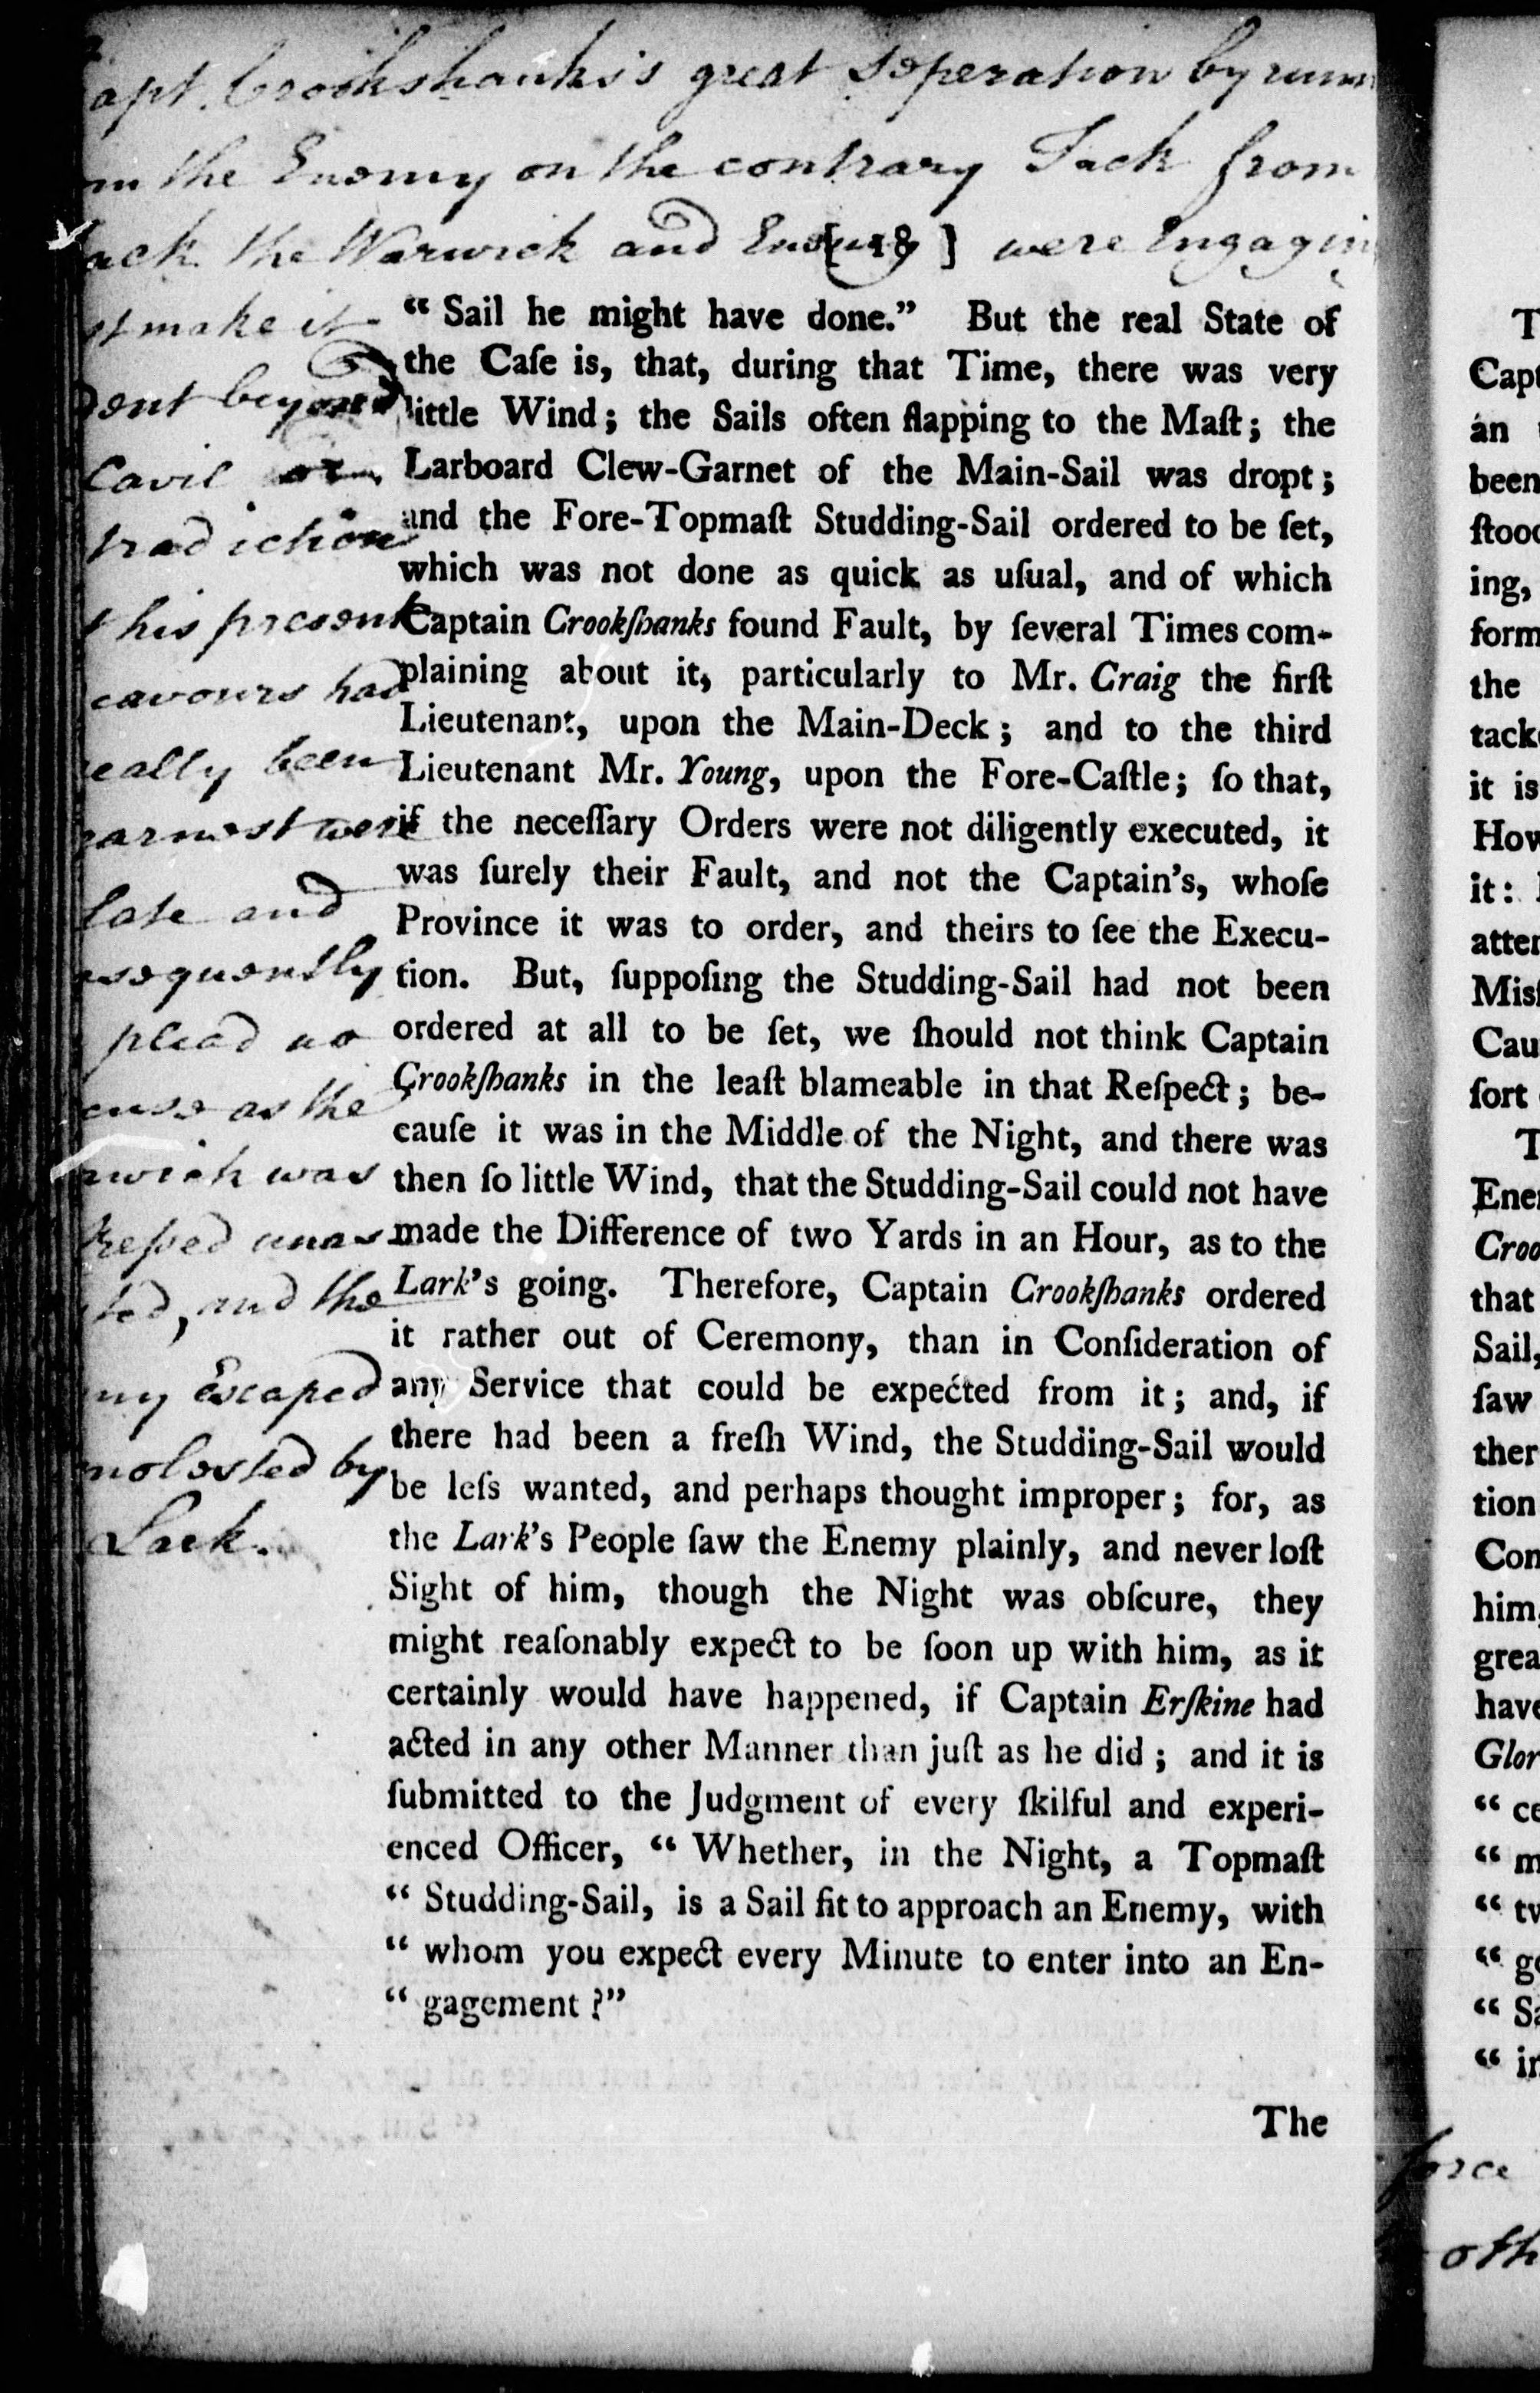 apt. Crookshanks's great Seperation by runn
m the Enemy on the contrary Tack from
ack the Warwick and Enemy were Engagin
[ 18 ]
st make it
dent beyond
Cavil or
tradiction
t his present
eavours had
eally been
earnest were
late and
nsequently
plead no
cuse as the
rwick was
tressed unas
sted, and the
my Escaped
molested by
Lark.
“ Sail he might have done.” But the real State of
the Caſe is, that, during that Time, there was very
little Wind; the Sails often flapping to the Maſt; the
Larboard Clew-Garnet of the Main-Sail was dropt;
and the Fore-Topmaſt Studding-Sail ordered to be ſet,
which was not done as quick as uſual, and of which
Captain Crookſhanks found Fault, by ſeveral Times com-
plaining about it, particularly to Mr. Craig the firſt
Lieutenant, upon the Main-Deck; and to the third
Lieutenant Mr. Young, upon the Fore-Caſtle; ſo that,
if the neceſſary Orders were not diligently executed, it
was ſurely their Fault, and not the Captain's, whoſe
Province it was to order, and theirs to ſee the Execu-
tion. But, ſuppoſing the Studding-Sail had not been
ordered at all to be ſet, we ſhould not think Captain
Crookſhanks in the leaſt blameable in that Reſpect; be-
cauſe it was in the Middle of the Night, and there was
then ſo little Wind, that the Studding-Sail could not have
made the Difference of two Yards in an Hour, as to the
Lark's going. Therefore, Captain Crookſhanks ordered
it rather out of Ceremony, than in Conſideration of
any Service that could be expected from it; and, if
there had been a freſh Wind, the Studding-Sail would
be leſs wanted, and perhaps thought improper; for, as
the Lark's People ſaw the Enemy plainly, and never loſt
Sight of him, though the Night was obſcure, they
might reaſonably expect to be ſoon up with him, as it
certainly would have happened, if Captain Erſkine had
acted in any other Manner than juſt as he did; and it is
ſubmitted to the Judgment of every ſkilful and experi-
enced Officer, “ Whether, in the Night, a Topmaſt
“ Studding-Sail, is a Sail fit to approach an Enemy, with
“ whom you expect every Minute to enter into an En-
“ gagement?”
The
T
Capt
an
been
ſtood
ing,
form
the
tack
it is
How
it:
atten
Miſ
Cau
ſort
T
Ene
Croo
that
Sail,
ſaw
ther
tion
Con
him,
grea
have
Glor
“ ce
“ m
“ tw
“ go
“ Sa
“ in
force
oth